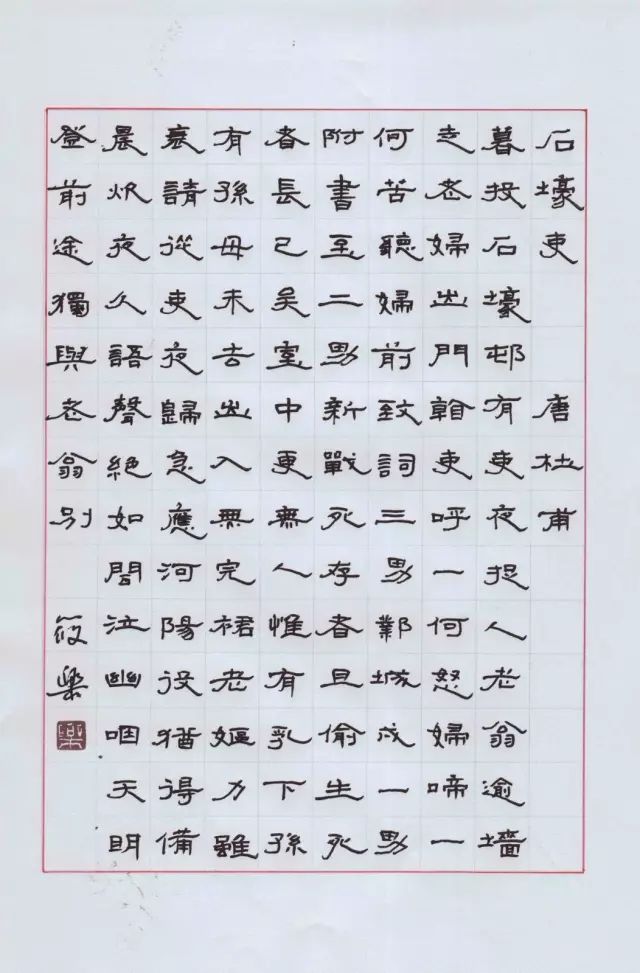 石壕吏 唐杜甫
暮投石壕邨有吏夜捉人老翁逾墻
走老婦出門看吏呼一何怒婦啼一
何苦聽婦前致詞三男鄴城戍一男
附書至二男新戰死存者且偷生死
者長已矣室中更無人惟有乳下孫
有孫母未去出入無完裙老嫗力雖
衰請從吏夜歸急應河陽役猶得備
晨炊夜久語聲絕如聞泣幽咽天明
登前途獨與老翁別 筱樂
樂